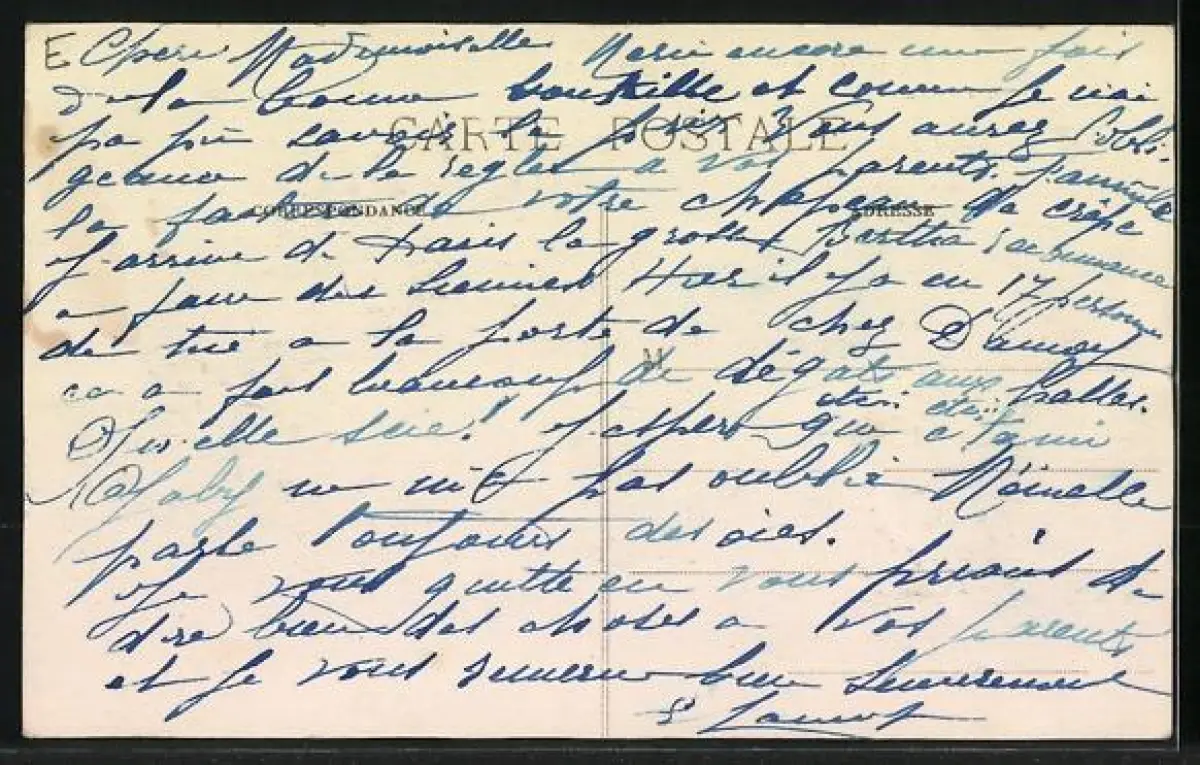 E Chère Mademoiselle Merci encore une fois
de la bonne bouteille et comme je n'ai
pas pu savoir le prix Vous aurez l'obli-
CARTE POSTALE
geance de le régler a vos parents.
la de votre chapeau de crêpe
CORRESPONDANCE
ADRESSE
J'arrive de Paris la grosse Bertha
a faire des Hier il y a eu 17 personne
de tué a la porte de chez Damoy
M
ca a fait beaucoup de dégats aux halles.
J'espere que
Gaby ne m'a pas oublié
parle toujours des oies.
Je vous quitte en vous priant de
dire bien des choses a Vos parents
et je vous remercie bien